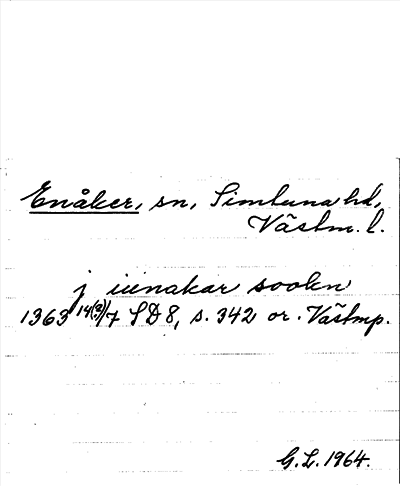 Enåker, sn, Simtuna hd,
Västm. l.
j iienakar sookn
1363 14(?)/7 SD 8, s. 342 or. Västmp.
G.L. 1964.